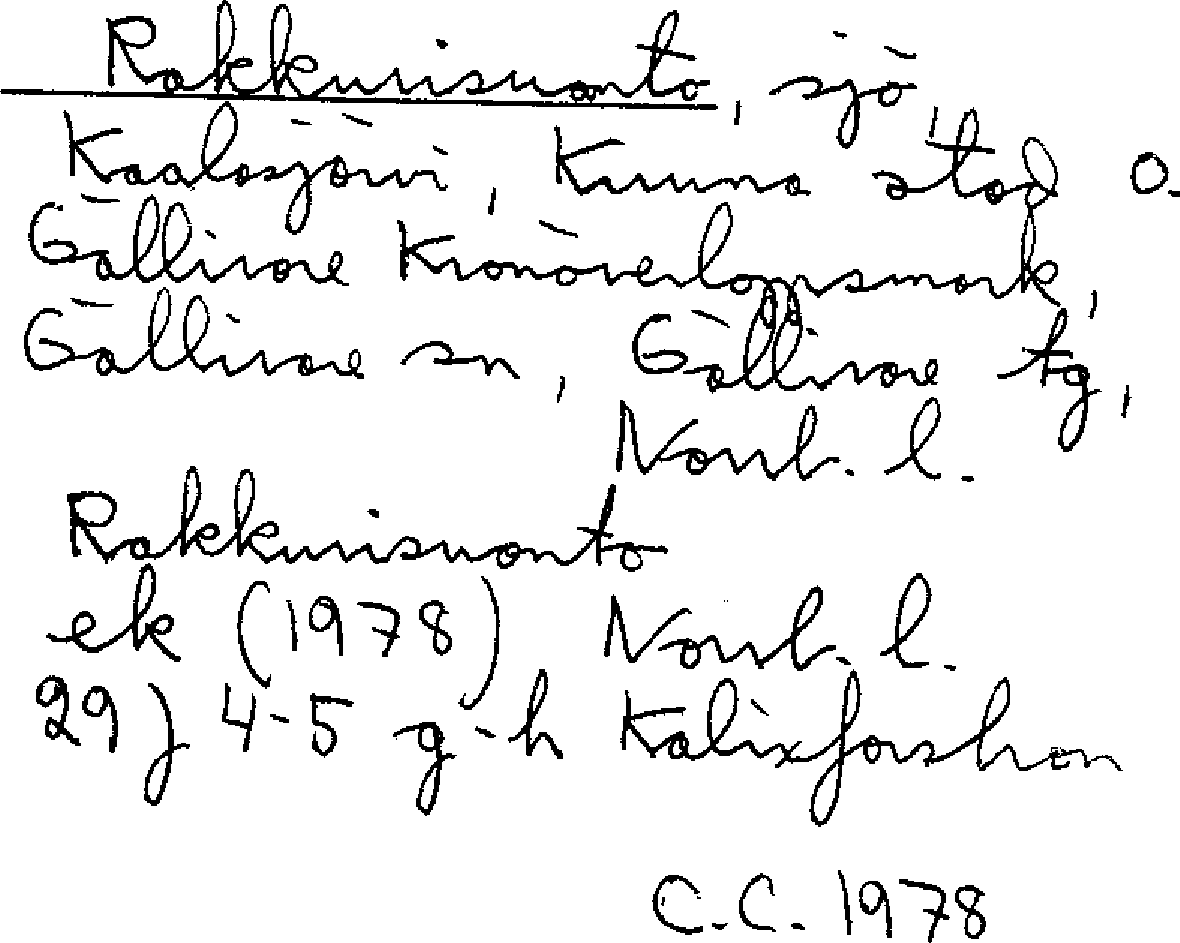 Rakkurisuanto, sjö,
Kaalasjärvi, Kiruna stad o.
Gällivare Kronöverloppsmark,
Gällivare sn, Gällivare tg,
Norrb. l.
Rakkurisuanto
ek (1978) Norrb. l.
29 J 4-5 g-h Kalixforsbron
C.C. 1978